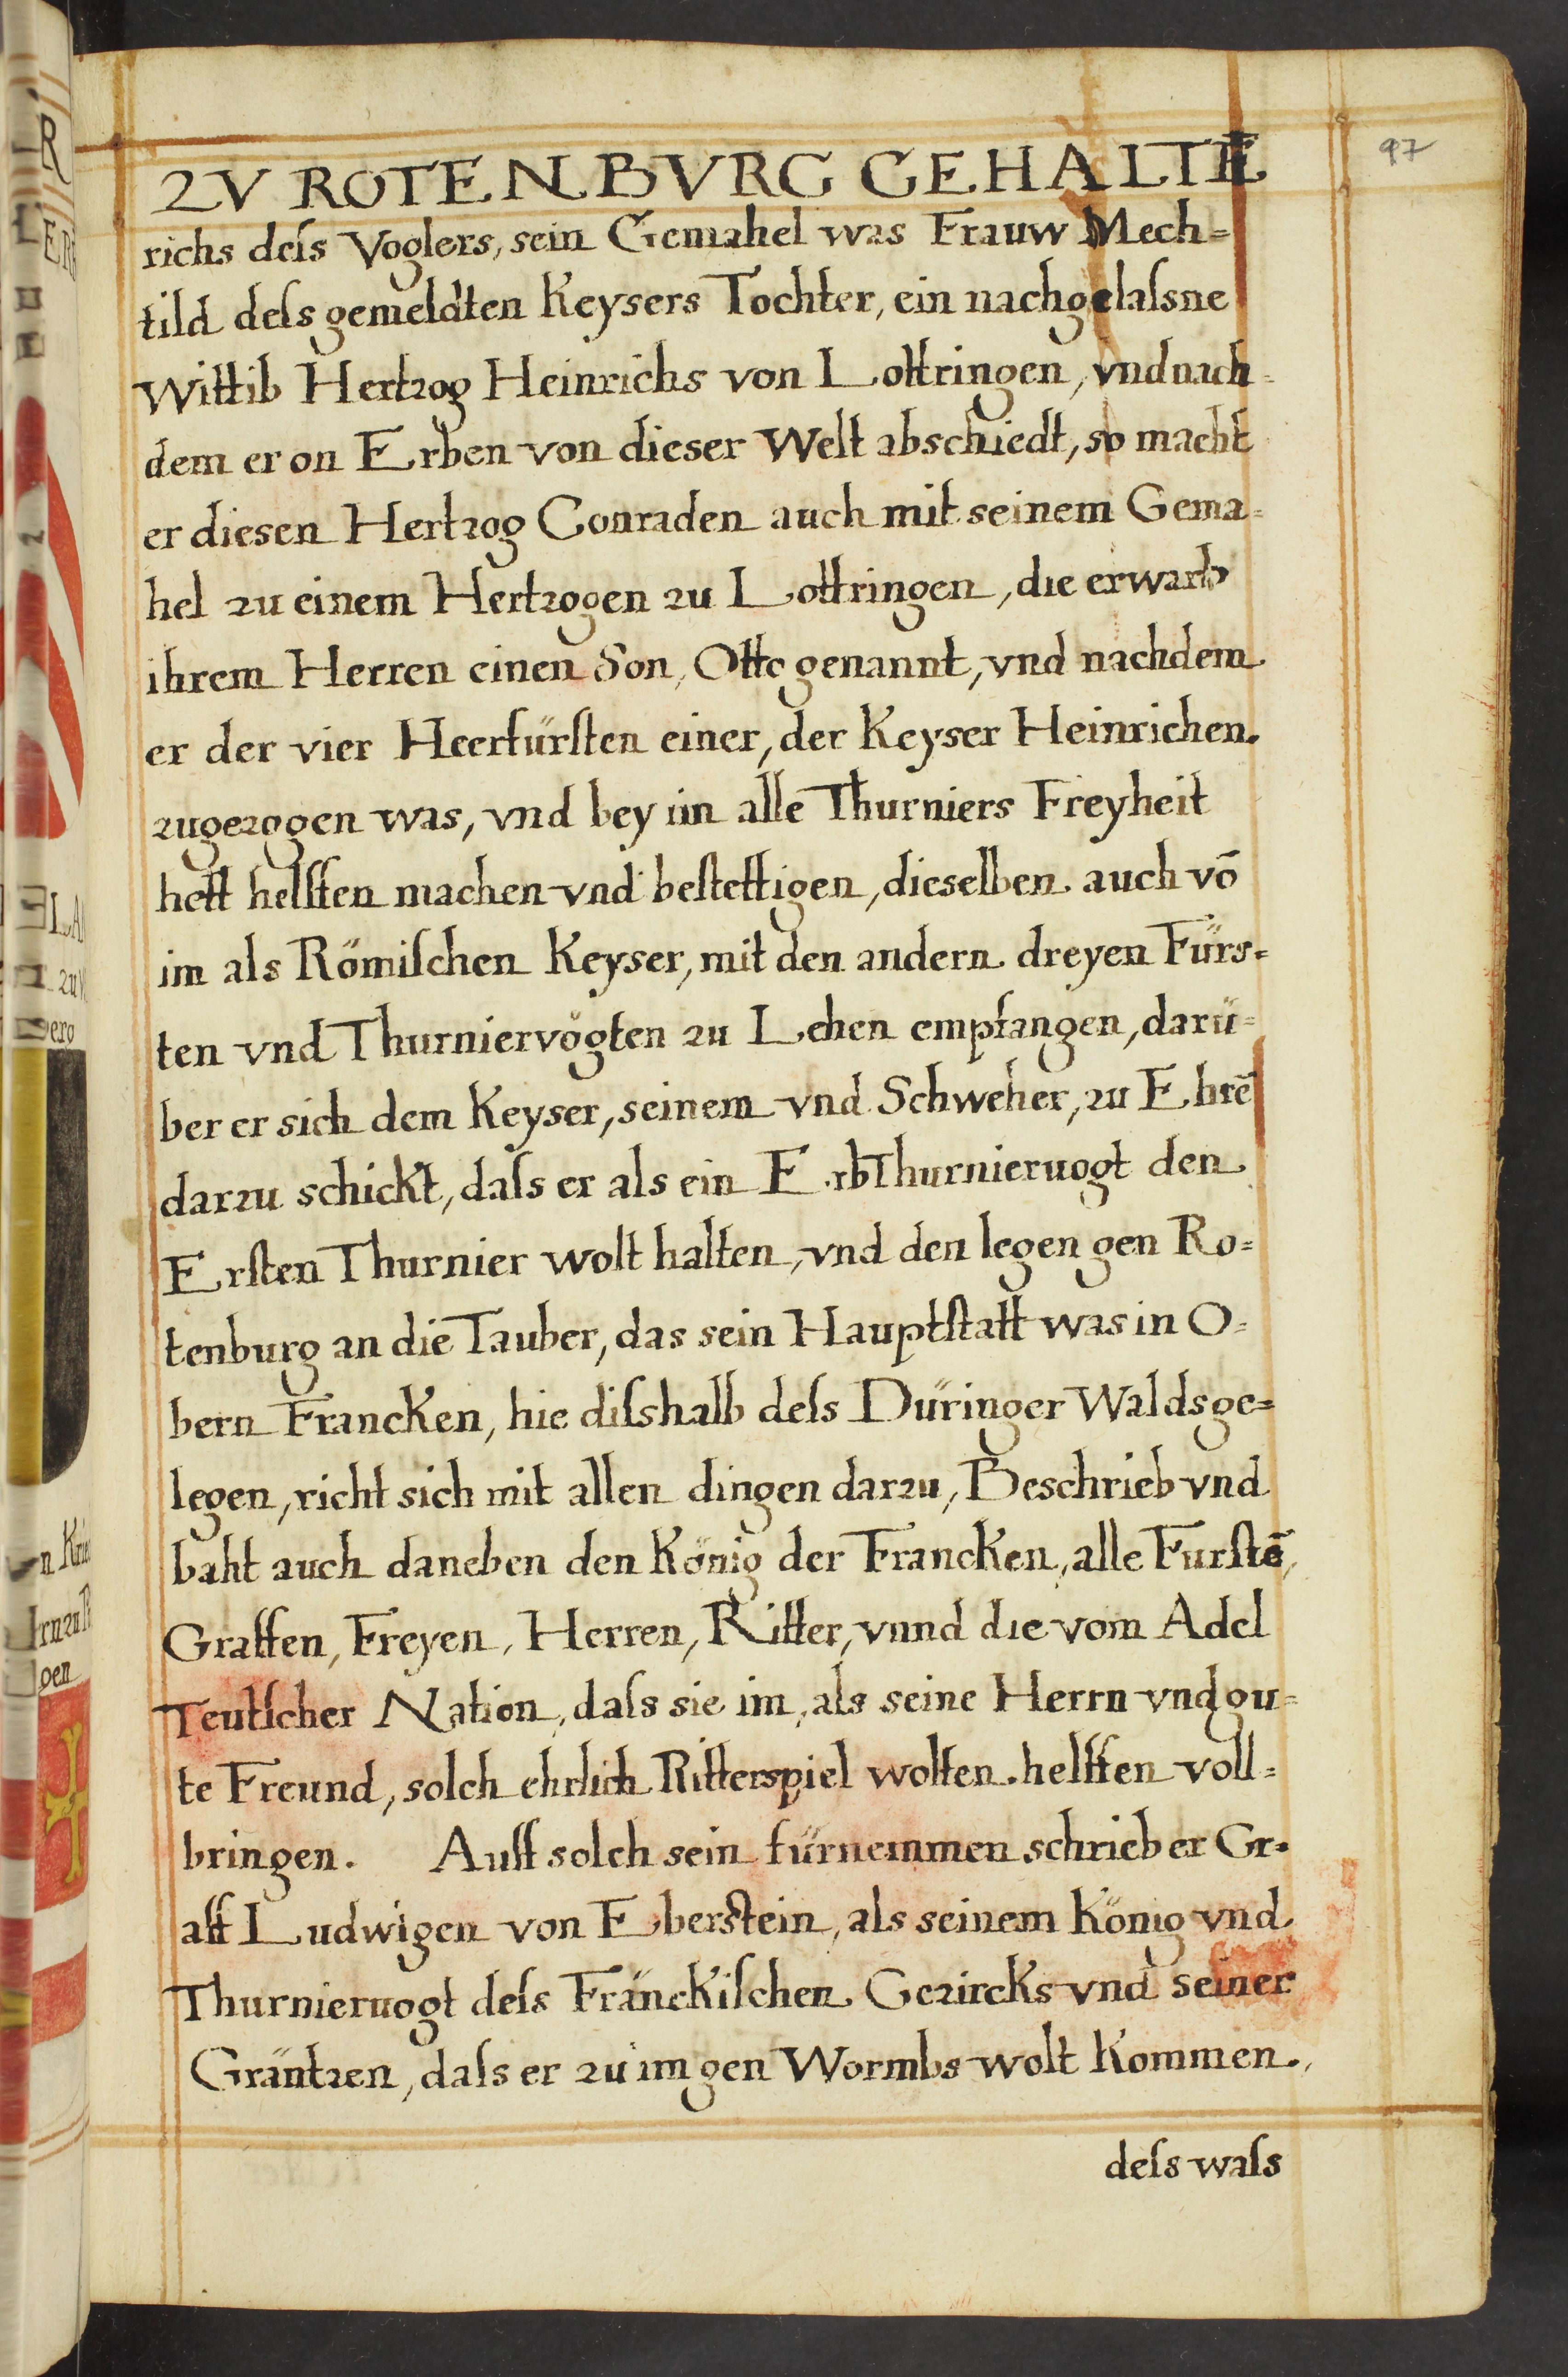 97
ZV ROTENBVRG GEHALTE
richs deſs Voglers, sein Gemahel was Frauw Mech=
tild deſs gemeldten Keysers Tochter, ein nachgelaſsne
Wittib Hertzog Heinrichs von Lottringen, vnd nach=
dem er on Erben von dieser Welt abschiedt, so macht
er diesen Hertzog Conraden auch mit seinem Gema=
hel zu einem Hertzogen zu Lottringen, die erwarb
ihrem Herren einen Son, Otto genannt, vnd nachdem
er der vier Heerfürſten einer, der Keyser Heinrichen.
zugezogen was, vnd bey im alle Thurniers Freyheit
hett helffen machen vnd beſtettigen, dieselben auch võ
im als Römiſchen Keyser, mit den andern dreyen Fürs=
ten vnd Thurniervögten zu Lehen empfangen, darü=
ber er sich dem Keyser, seinem vnd Schweher, zu Ehrẽ
darzu schickt, daſs er als ein ErbThurnieruogt den
Erſten Thurnier wolt halten, vnd den legen gen Ro=
tenburg an die Tauber, das sein Hauptſtatt was in O=
bern Francken, hie diſshalb deſs Düringer Walds ge=
legen, richt sich mit allen dingen darzu, Beschrieb vnd
baht auch daneben den König der Francken, alle Furſtẽ,
Graffen, Freyen, Herren, Ritter, vnnd die vom Adel
Teutſcher Nation, daſs sie im, als seine Herrn vnd gu=
te Freund, solch ehrlich Ritterspiel wolten. helffen voll=
bringen. Auff solch sein fürnemmen schrieb er Gr=
aff Ludwigen von Eberſtein, als seinem König vnd
Thurnieruogt deſs Fränckiſchen Gezircks vnd seiner
Gräntzen, daſs er zu im gen Wormbs wolt kommen.,
deſs waſs